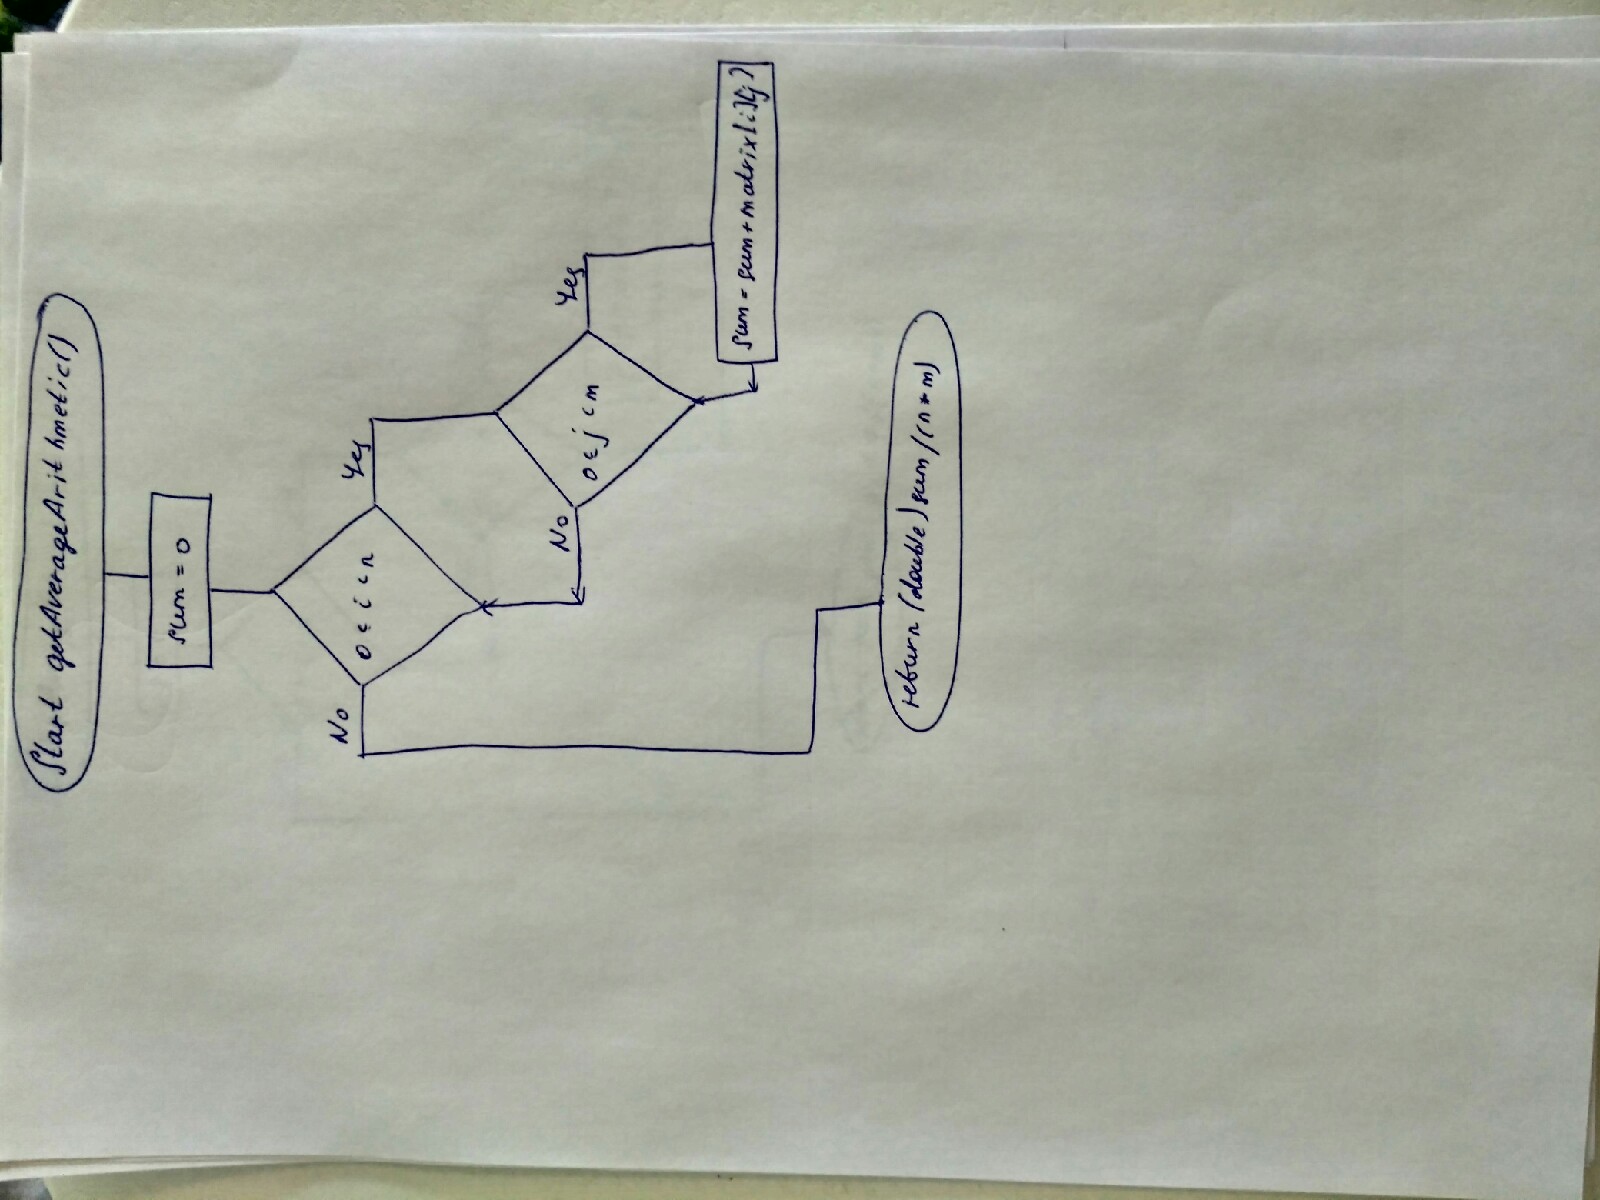 Start getAverageArithmetic()
sum = 0
0 ≤ i < n
Yes
No
0 ≤ j < m
Yes
No
sum = sum + matrix[i][j]
return (double) sum / (n * m)